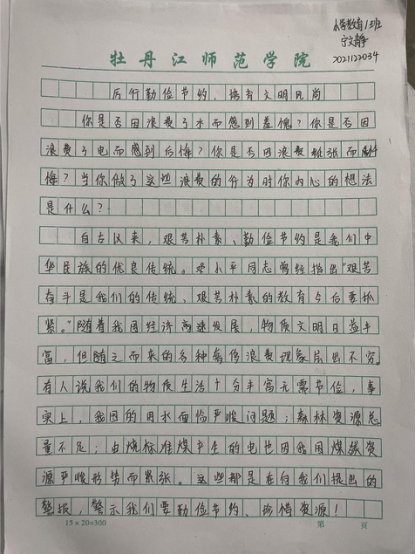 小学教育1班
宁文静
2021122034
牡丹江师范学院
厉行勤俭节约、培育文明风尚
你是否因浪费了水而感到羞愧?你是否因
浪费了电而感到后悔?你是否因浪费纸张而
悔?当你做了这些浪费的行为时你内心的想法
是什么?
自古以来,艰苦朴素、勤俭节约是我们中
华民族的优良传统。邓小平同志曾经指出"艰苦
奋斗是我们的传统、艰苦朴素的教育今后要抓
紧。"随着我国经济高速发展,物质文明日益丰
富,但随之而来的各种铺张浪费现象层出不穷。
有人说我们的物质生活十分丰富无需节俭,事
实上,我国的用水面临严峻问题;森林资源总
量不足;由烧标准煤产生的电也因我国煤炭资
源严峻形势而紧张。这些都是在向我们提出的
警报,警示我们要勤俭节约、珍惜资源!
15×20=300
第 页